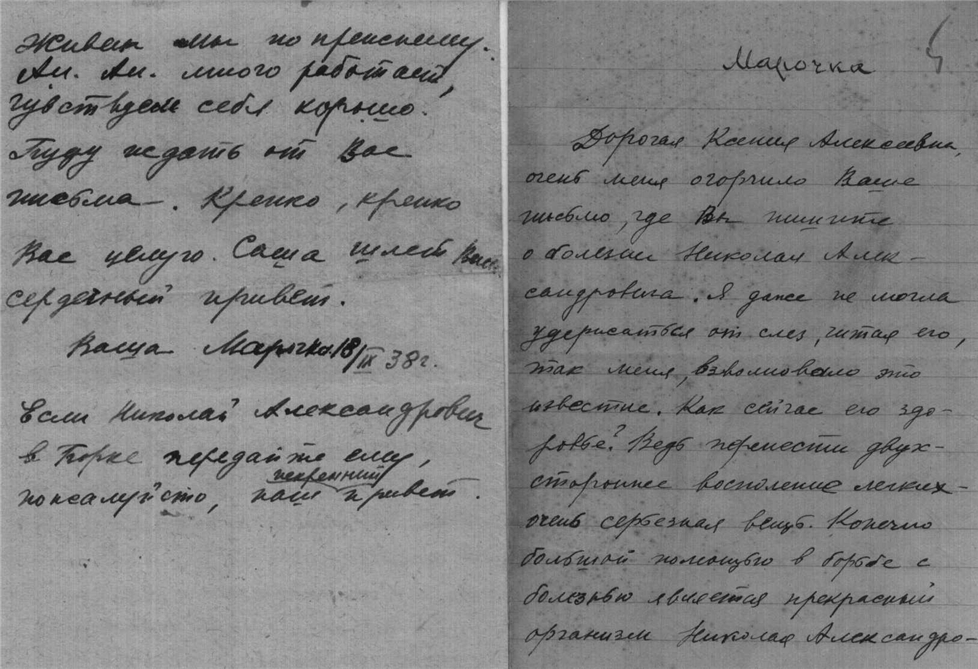 Живем мы по прежнему.
Ал. Ал. много работает,
чувствуем себя хорошо.
Буду ждать от Вас
письма. Крепко, крепко
Вас целую. Саша шлет Вам
сердечный привет.
Ваша Марочка 18/IX 38 г.
Если Николай Александрович
в Борке передайте ему,
искренний
пожалуйста, наш привет.
Марочка
Дорогая Ксения Алексеевна,
очень меня огорчило Ваше
письмо, где Вы пишите
о болезни Николая Алек-
сандровича. Я даже не могла
удержаться от слез, читая его,
так меня взволновало это
известие. Как сейчас его здо-
ровье? Ведь перенести двух-
стороннее воспаление легких -
очень серьезная вещь. Конечно
большой помощью в борьбе с
болезнью является прекрасный
организм Николая Александро-